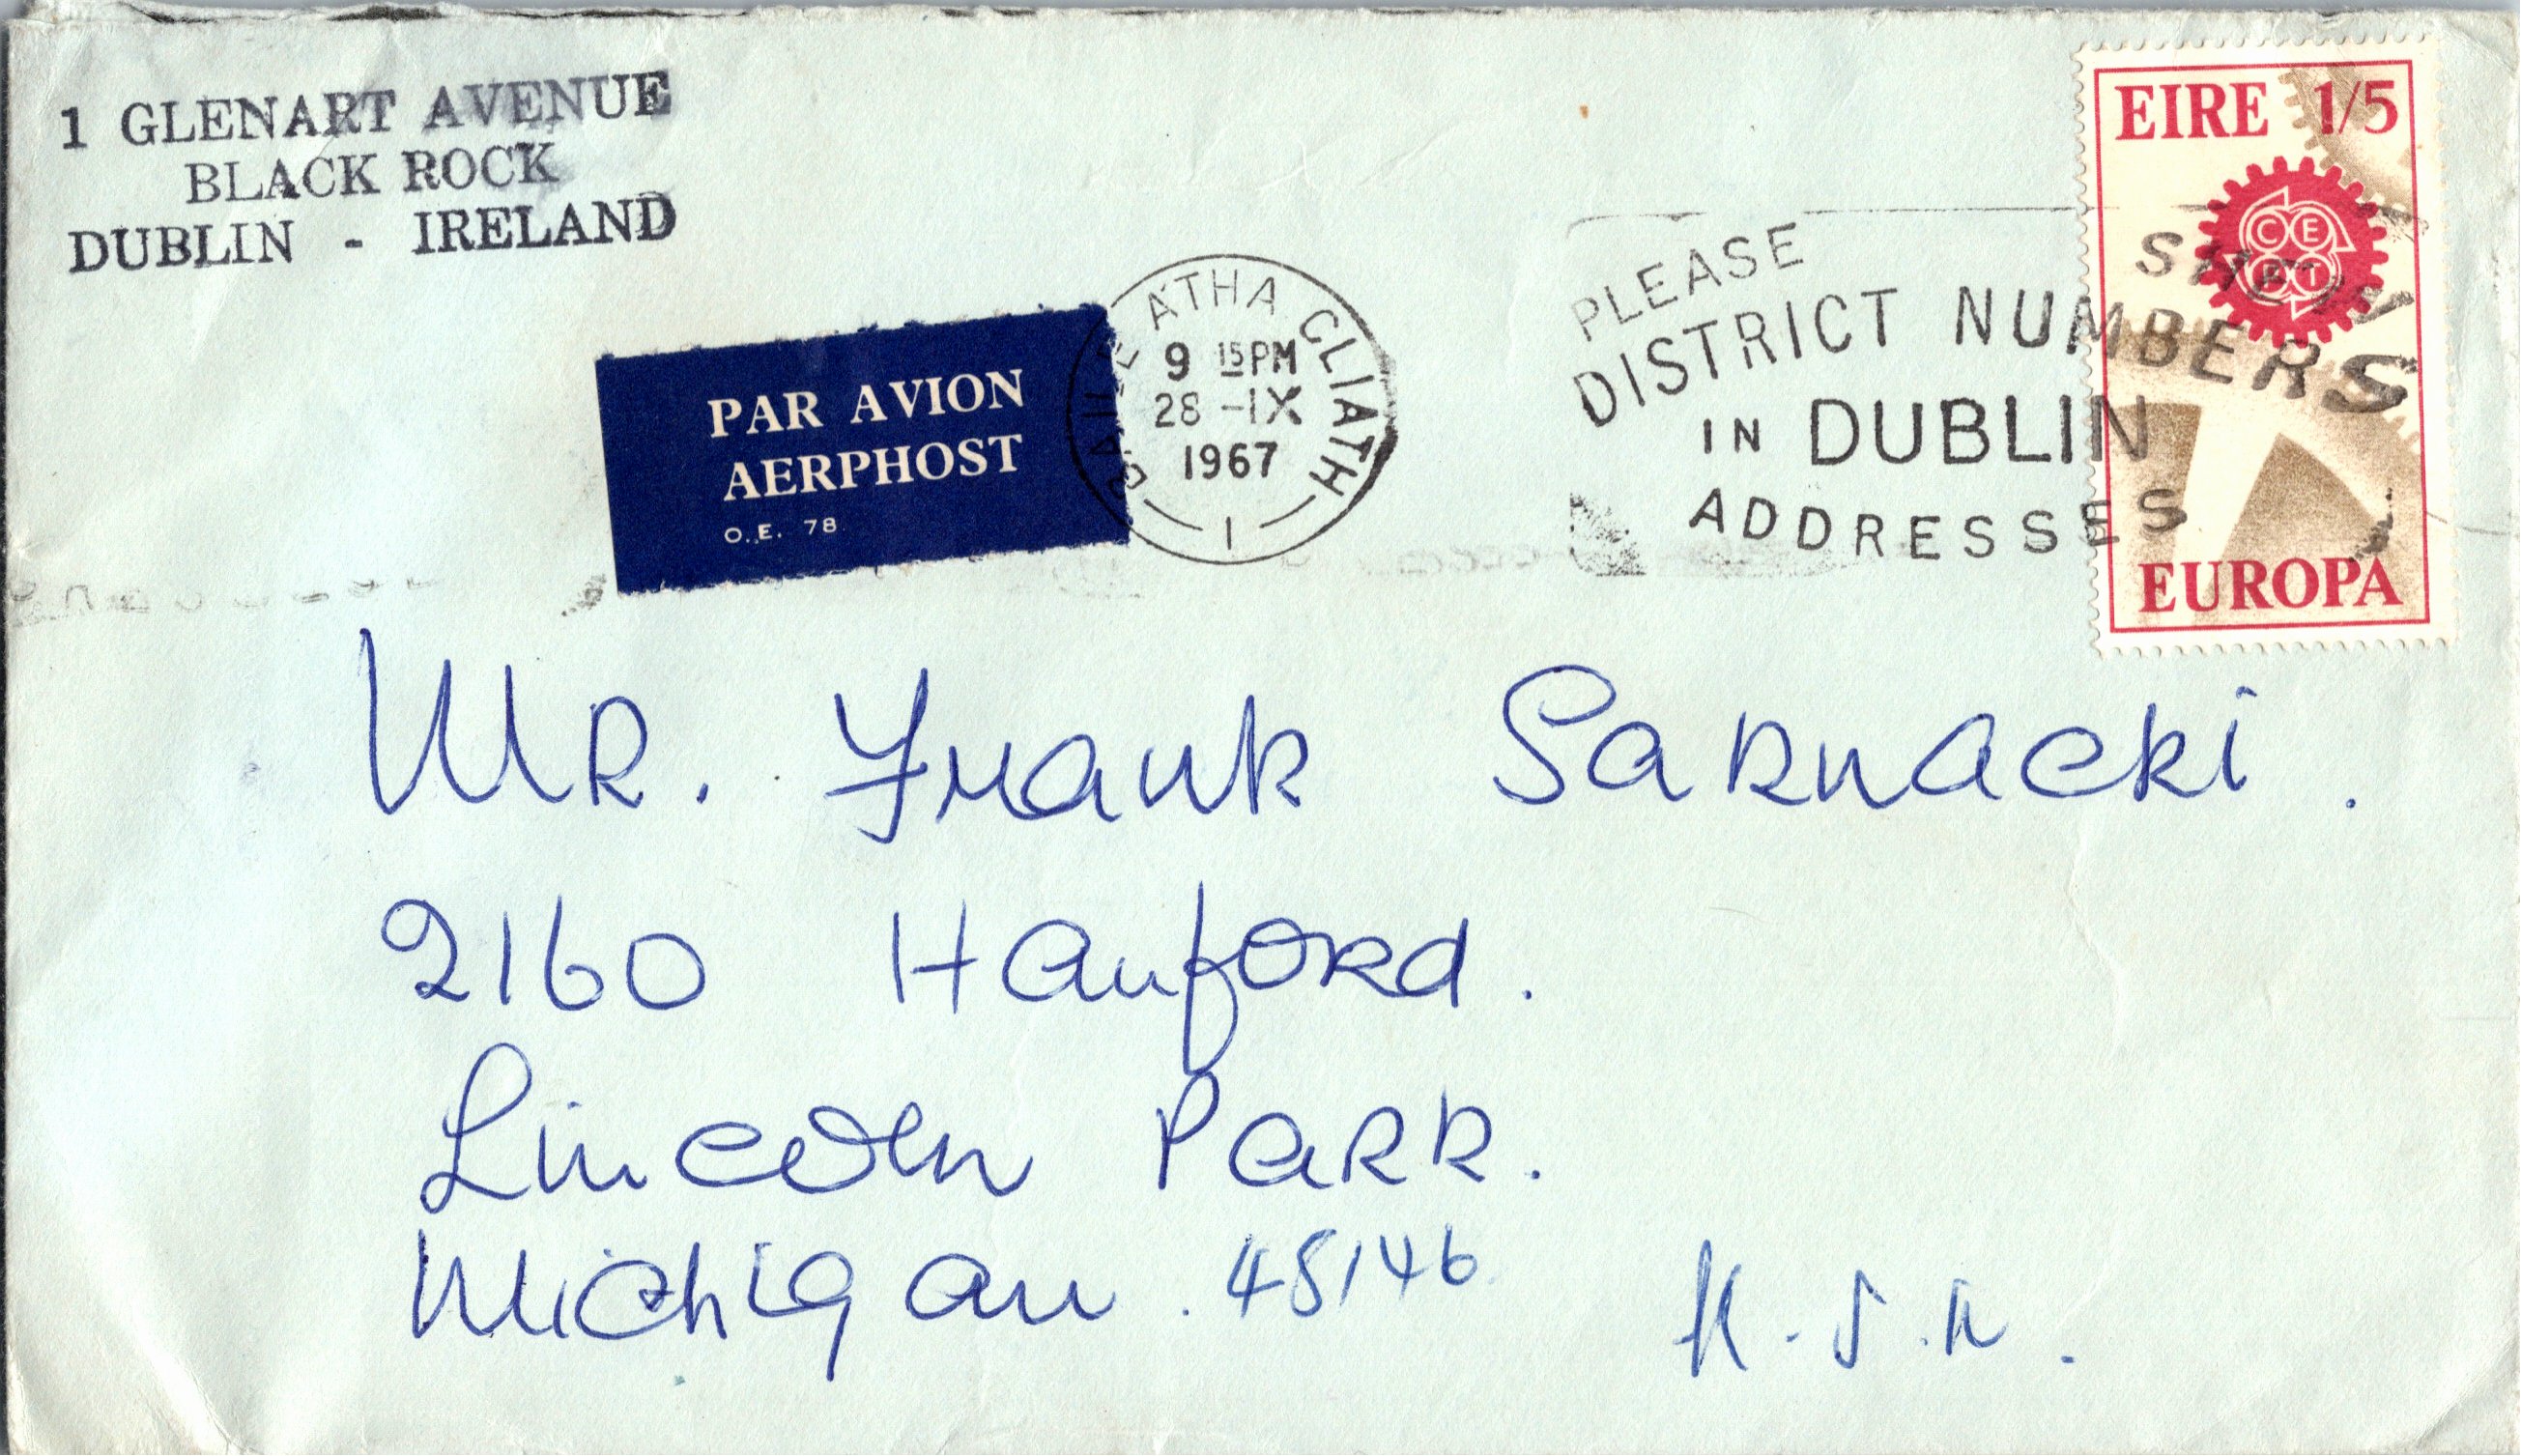 1 GLENART AVENUE
BLACK ROCK
DUBLIN - IRELAND
PAR AVION
AERPHOST
O.E. 78
BAILE ATHA CLIATH
9 15PM
28 -IX
1967
1
PLEASE SHOW
DISTRICT NUMBERS
IN DUBLIN
ADDRESSES
EIRE 1/5
CE
PT
EUROPA
MR. Frank Sarnacki.
2160 Hanford.
Lincoln Park.
Michigan. 48146
U.S.A.